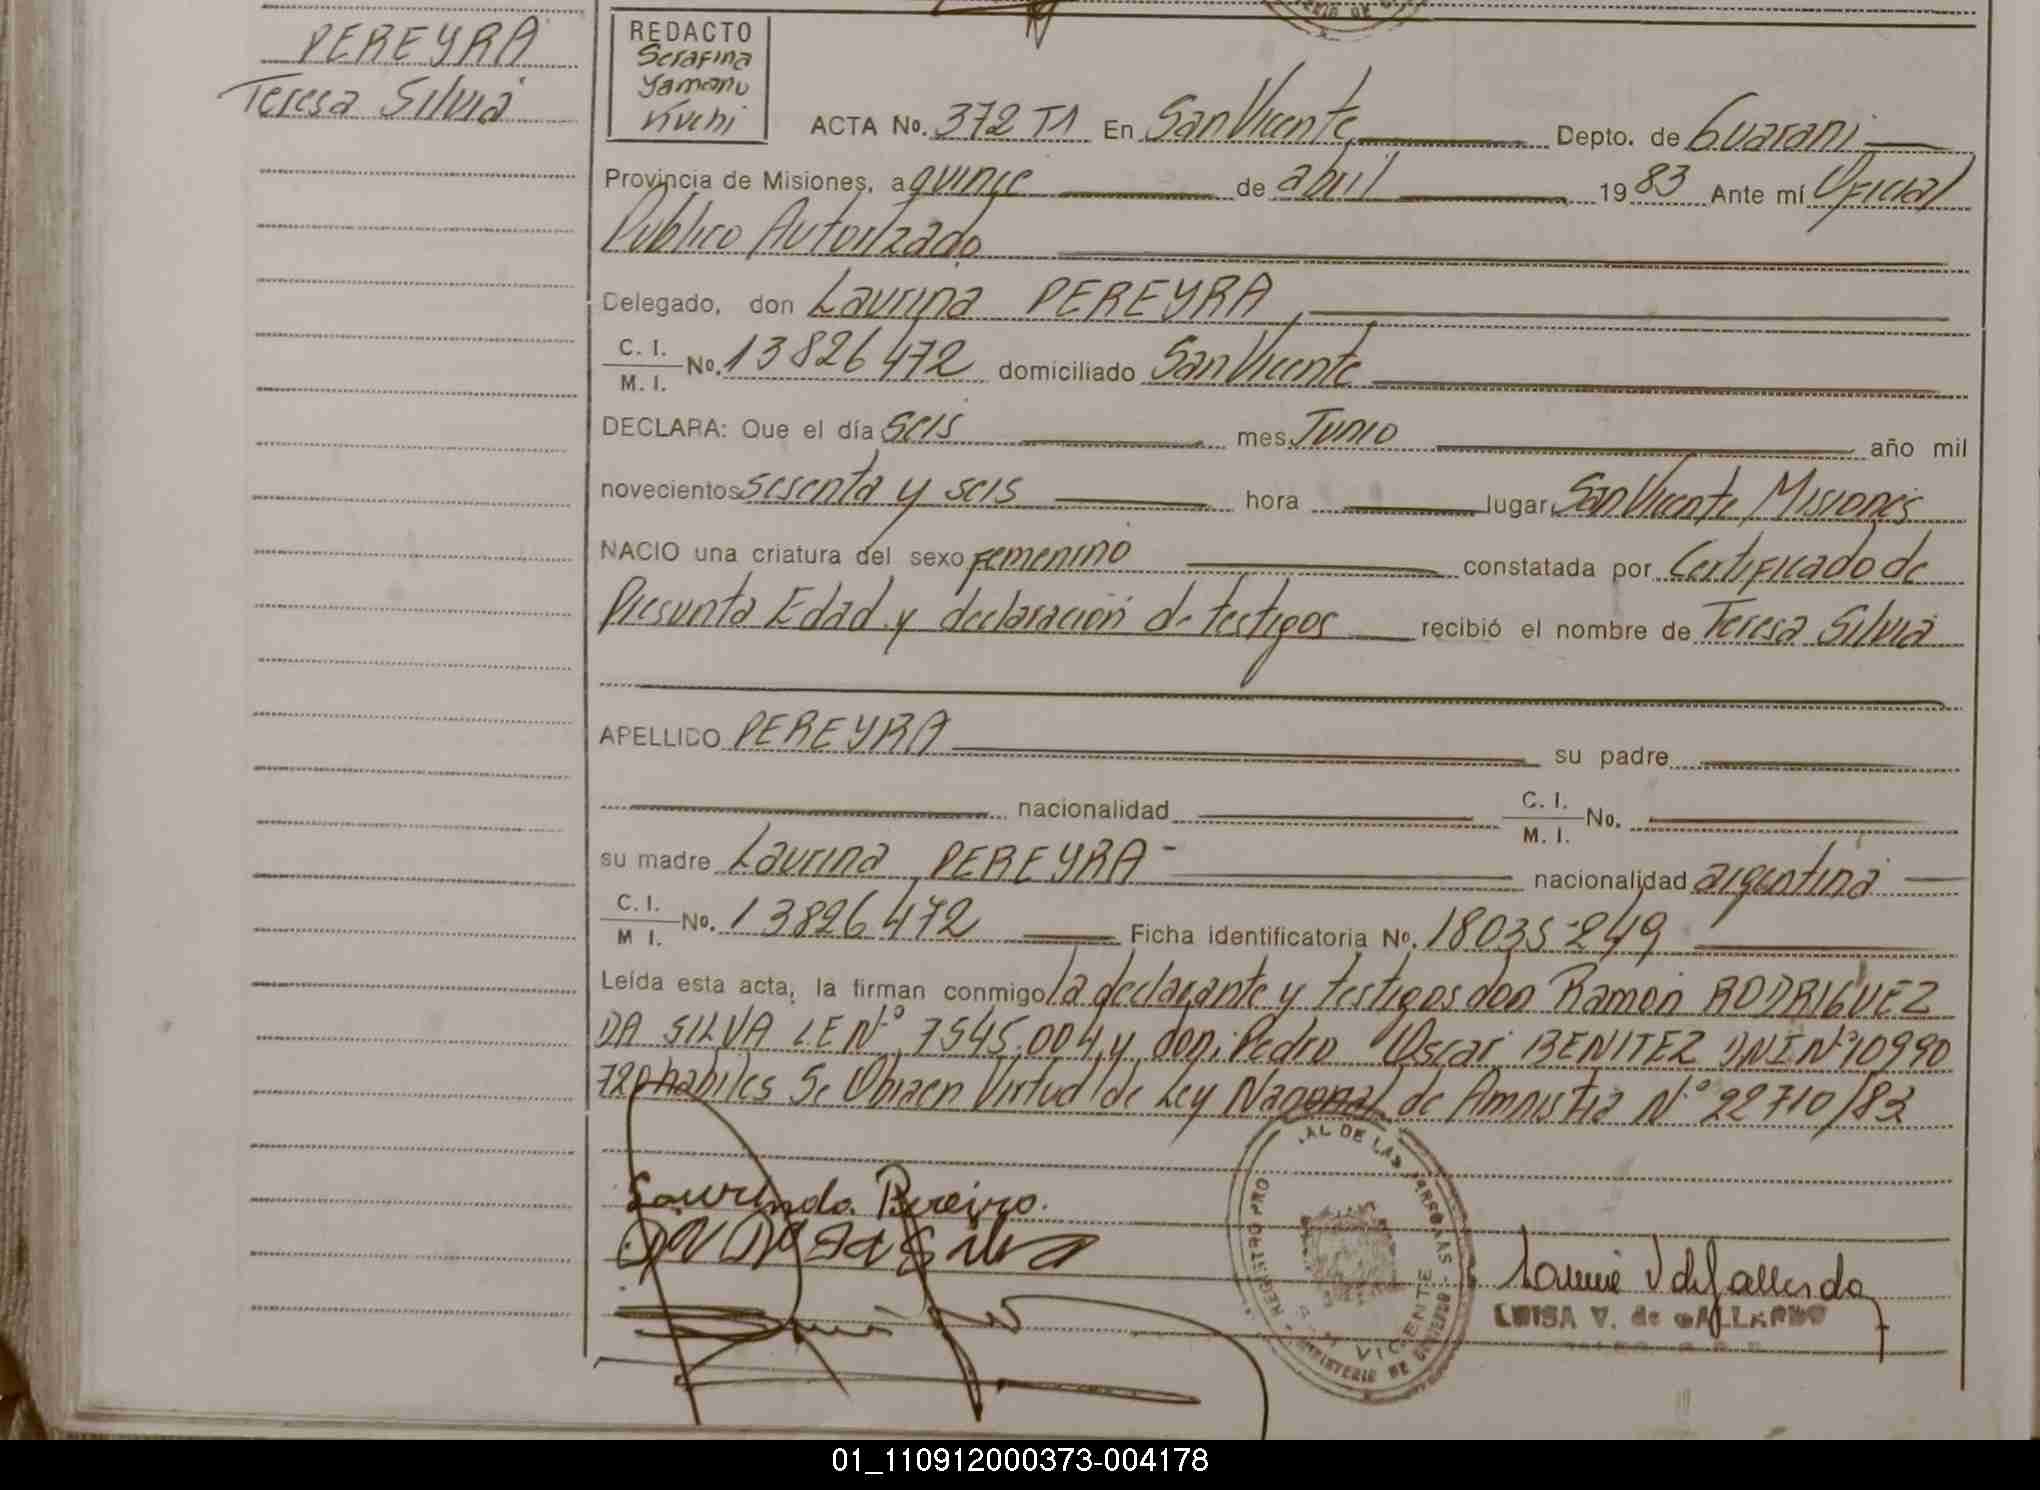 PEREYRA
Teresa Silvia
REDACTO
Serafina
Yamanu
Kuchi
ACTA No. 372 T1 En San Vicente Depto. de Guarani
Provincia de Misiones, a quince de abril 1983 Ante mí Oficial
Publico Autorizado
Delegado, don Laurina PEREYRA
C. I.
M. I. No. 13826472 domiciliado San Vicente
DECLARA: Que el día seis mes Junio año mil
novecientos sesenta y seis hora lugar San Vicente Misiones
NACIO una criatura del sexo Femenino constatada por Certificado de
Presunta Edad y declaración de testigos recibió el nombre de Teresa Silvia
APELLIDO PEREYRA su padre
nacionalidad C. I.
M. I. No.
su madre Laurina PEREYRA nacionalidad argentina
C. I.
M I. No. 13826472 Ficha identificatoria No. 18035-249
Leída esta acta, la firman conmigo la declarante y testigos don Ramon RODRIGUEZ
DA SILVA L.E Nº 7545.004 y don Pedro Oscar BENITEZ DNI Nº 10990
720 habiles Se Obra en Virtud de Ley Nacional de Amnistia Nº 22710/83
REGISTRO PRO AL DE LAS PERSONAS
MINISTERIO DE GOBIERNO
VICENTE
LUISA V. de GALLARDO
01_110912000373-004178